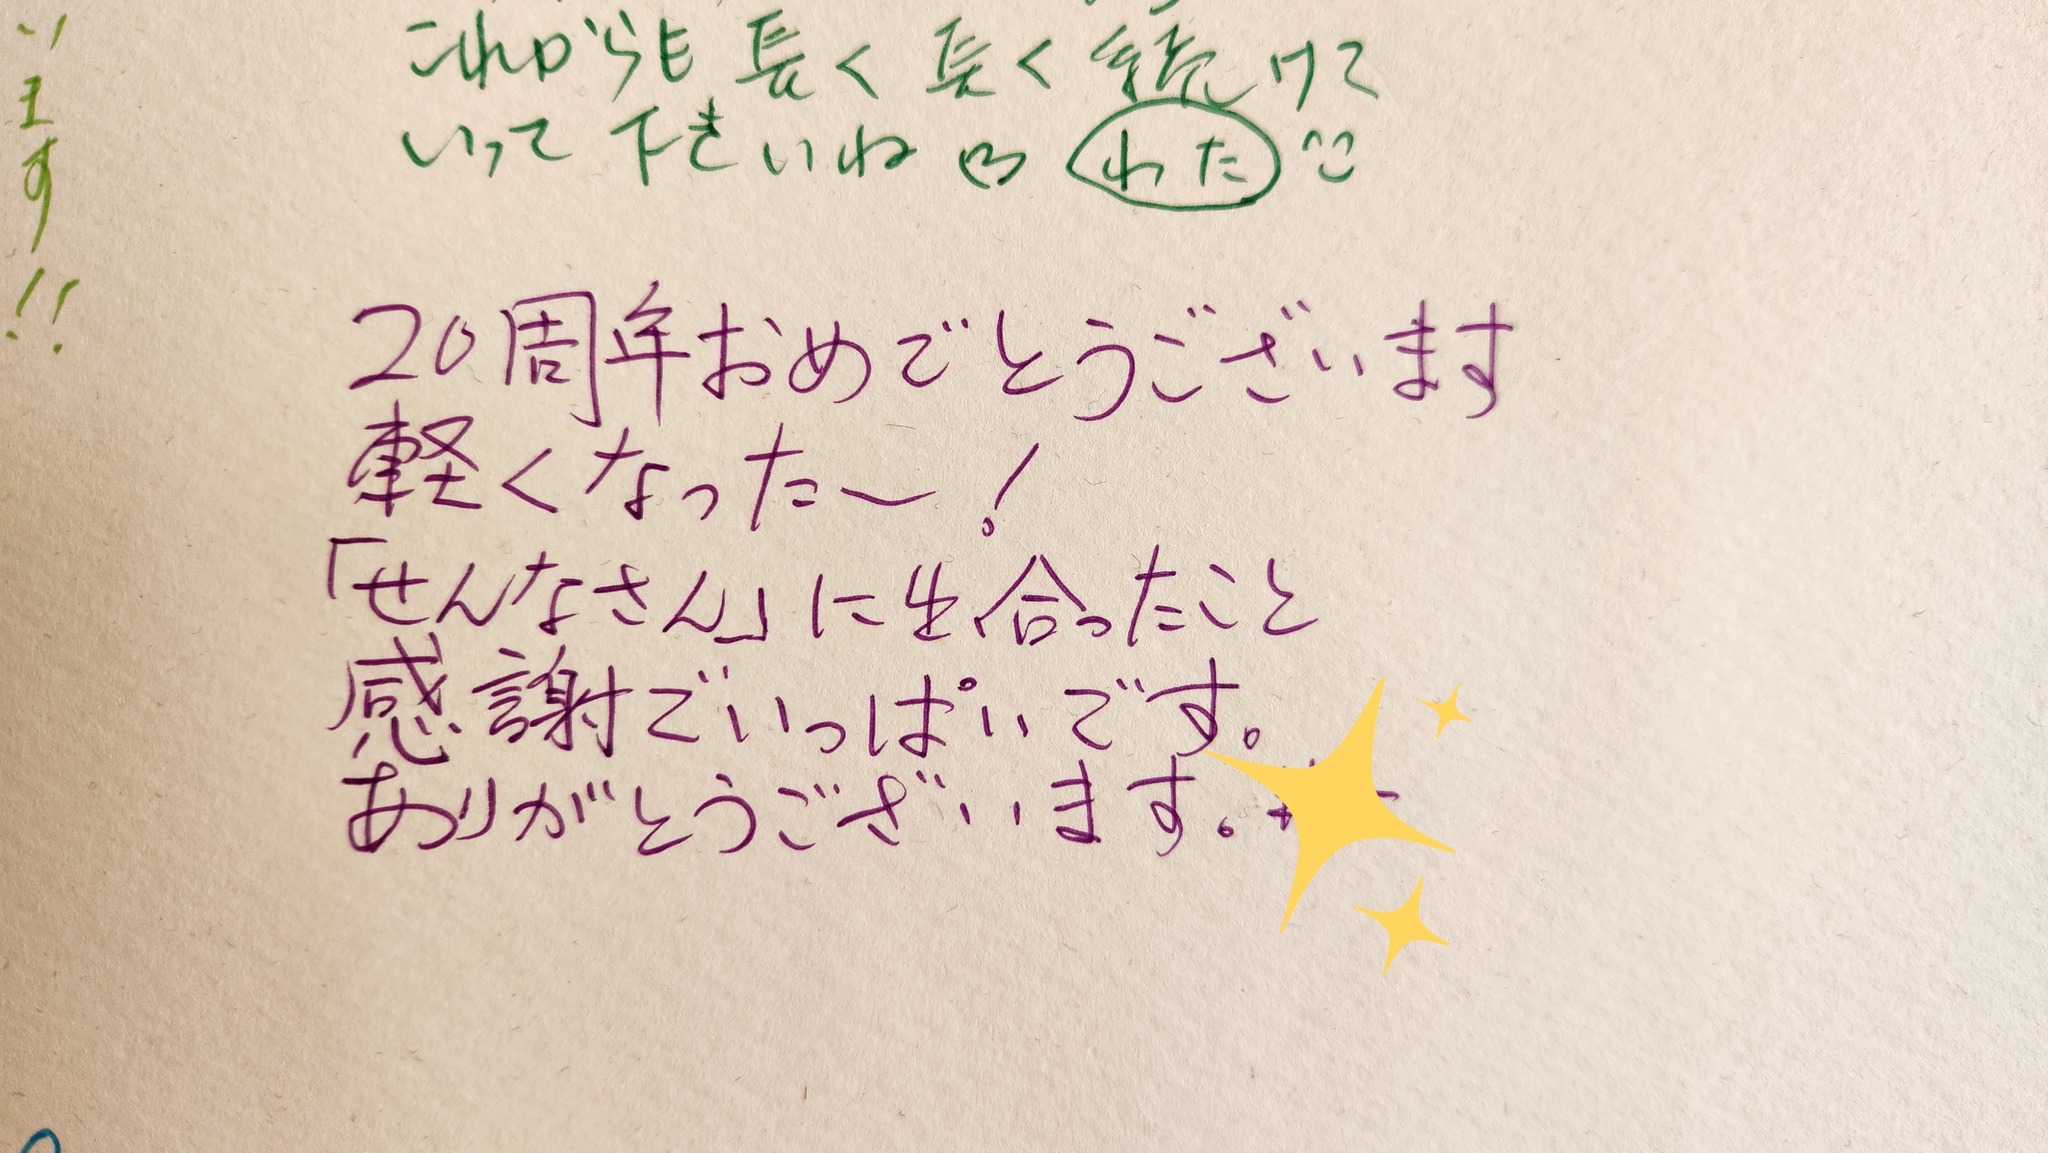 これからも長く長く続けて
いって下さいね わた
ます!!
20周年おめでとうございます
軽くなったー!
「せんなさん」に出合ったこと
感謝でいっぱいです。
ありがとうございます。